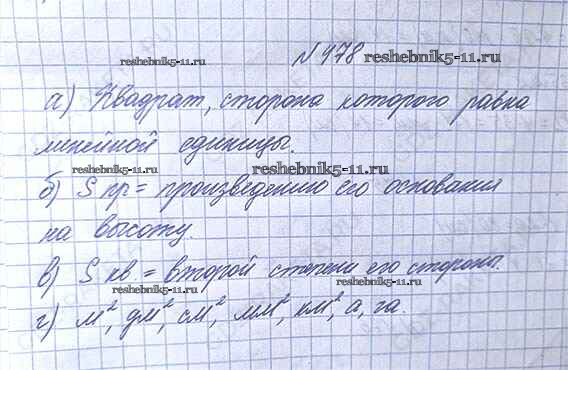 reshebnik5-11.ru
№ 478 reshebnik5-11.ru
а) Квадрат, сторона которого равна
линейной единицы.
reshebnik5-11.ru
б) S пр = произведению его основания
на высоту.
в) S кв = второй степени его стороны.
reshebnik5-11.ru
г) м², дм², см², мм², км², а, га.